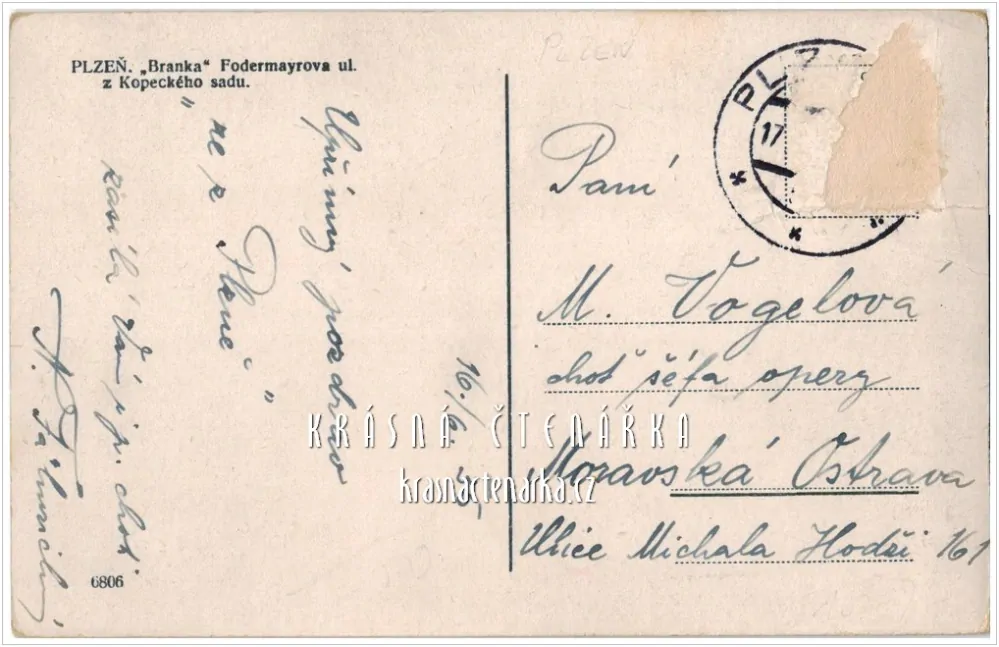 PLZEŇ. „Branka“ Fodermayrova ul.
z Kopeckého sadu.
PLZEŇ
PLZ
17
Upřímný pozdrav
" ne z
Plzně "
zasílá Vám i p. choti
A.
16./6. 35
Paní
M. Vogelová
choť šéfa opery
Moravská Ostrava
Ulice Michala Hodži 161
6806
KRÁSNÁ ČTENÁŘKA
krasnactenarka.cz